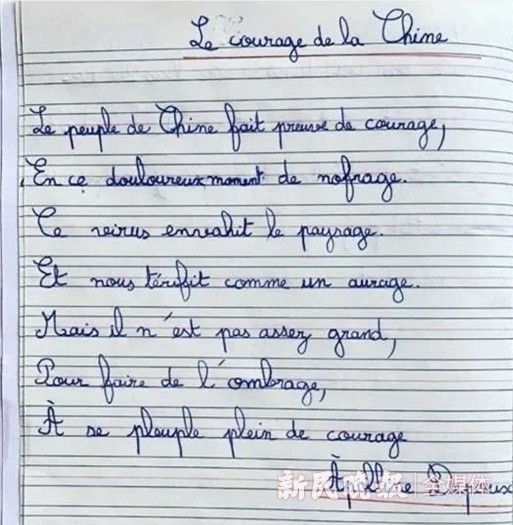 Le courage de la Chine
Le peuple de Chine fait preuve de courage,
En ce douloureux moment de nofrage.
Ce veirus envahit le paysage.
Et nous térifit comme un aurage.
Mais il n'est pas assez grand,
Pour faire de l'ombrage,
À se plouple plein de courage
Àpolline Dereux
新民晚报 全媒体